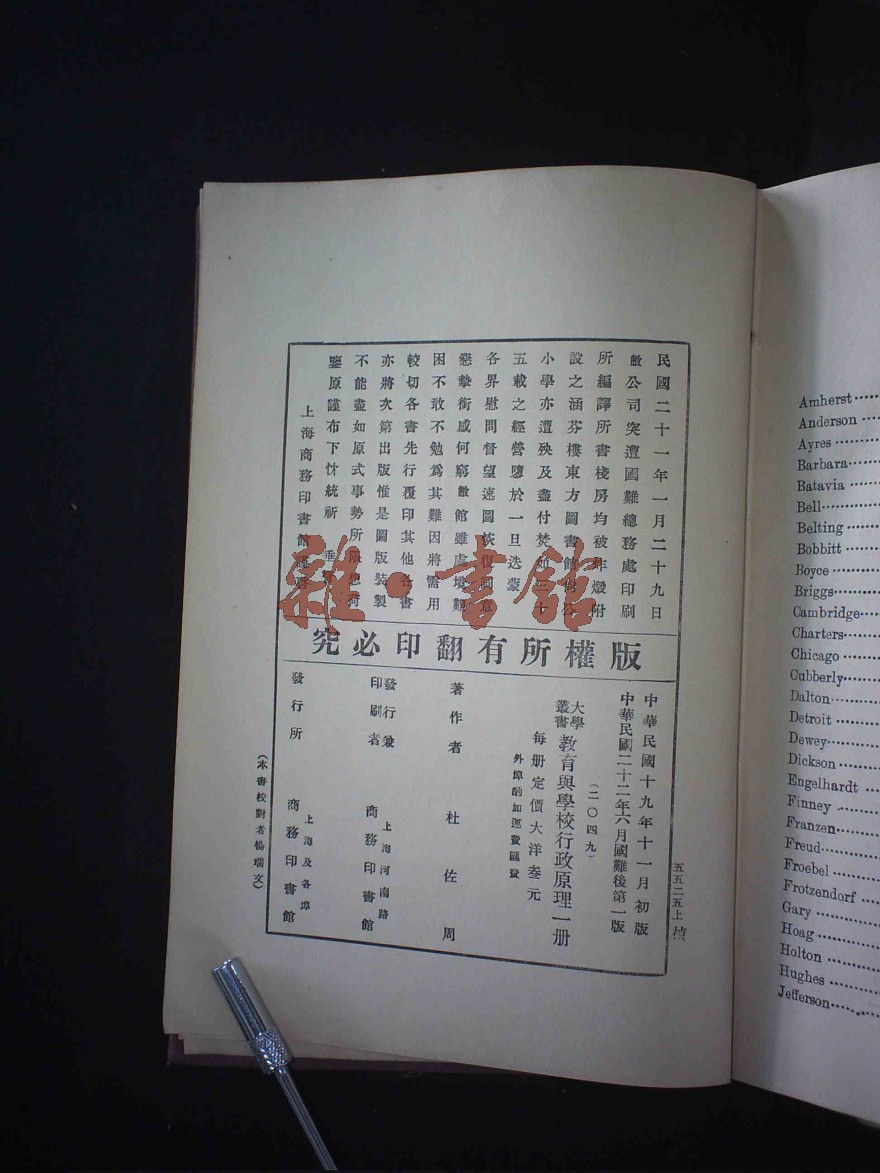 民國二十一年一月二十九日
敝公司突遭國難總務處印刷
所編譯所書棧房均被炸燬附
設之涵芬樓東方圖書館尙公
小學亦遭殃及盡付焚如三十
五載之經營隳於一旦迭蒙
各界慰問督望速圖恢復詞意
懇摯銜感何窮敝館雖處境艱
困不敢不勉爲其難因將需用
較切各書先行覆印其他各書
亦將次第出版惟是圖版裝製
不能盡如原式事勢所限想荷
鑒原謹布下忱統祈 垂詧
上海商務印書館謹啓
版權所有翻印必究
五五二五上
中華民國十九年十一月初版
中華民國二十二年六月國難後第一版
(二〇四九)
大學叢書 教育與學校行政原理一册
每册定價大洋叁元
外埠酌加運費匯費
著作者 杜佐周
發行兼印刷者 上海河南路 商務印書館
發行所 上海及各埠 商務印書館
(本書校對者楊瑞文)
雜·書館
Amherst
Anderson
Ayres
Barbara
Batavia
Bell
Belting
Bobbitt
Boyce
Briggs
Cambridge
Charters
Chicago
Cubberly
Dalton
Detroit
Dewey
Dickson
Engelhardt
Finney
Franzen
Freud
Froebel
Frotzendorf
Gary
Hoag
Holton
Hughes
Jefferson